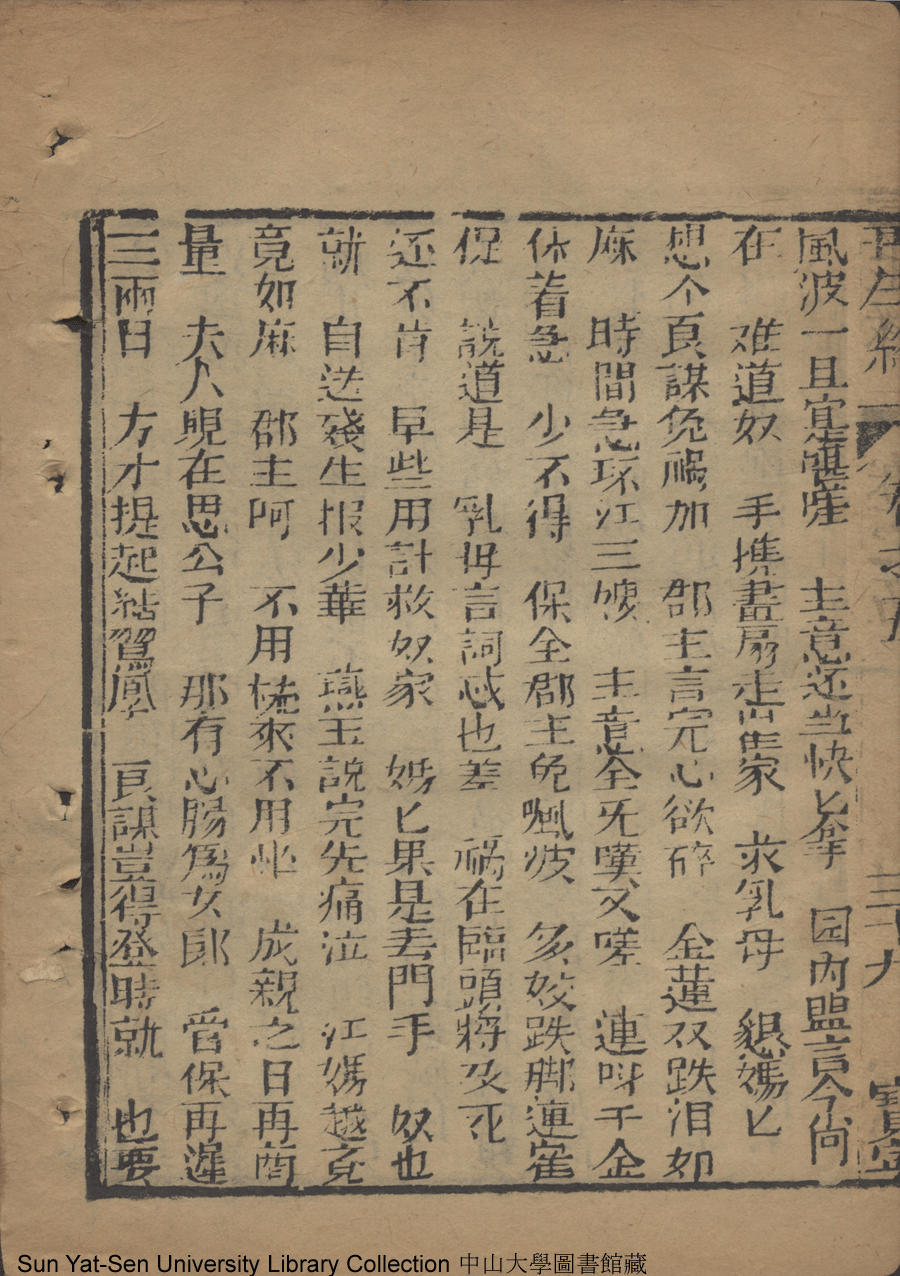 再生緣 卷之五 三十九 寶寧
風波一旦宜遭 主意还当快匕拿 园內盟言今尙
在 难道奴 手攜畫扇走 家 求乳母 懇媽匕
想个良謀免禍加 郡主言完心欲碎 金蓮双跌泪如
麻 時間急坏江三嫂 主意全无嘆又嗟 連呌千金
休着急 少不得 保全郡主免風波 多姣跌脚連催
促 説道是 乳母言詞忒也差 禍在臨頭將及死
还不肯 早些用計救奴家 媽匕果是丟門手 奴也
就 自送殘生报少華 燕玉説完先痛泣 江媽越竟
竟如麻 郡主阿 不用慌來不用 成親之日再商
量 夫人現在思公子 那有心腸爲女郎 當保再遲
三兩日 方才提起結鴛鳳 良謀豈得登時就 也要
Sun Yat-Sen University Library Collection 中山大學圖書館藏